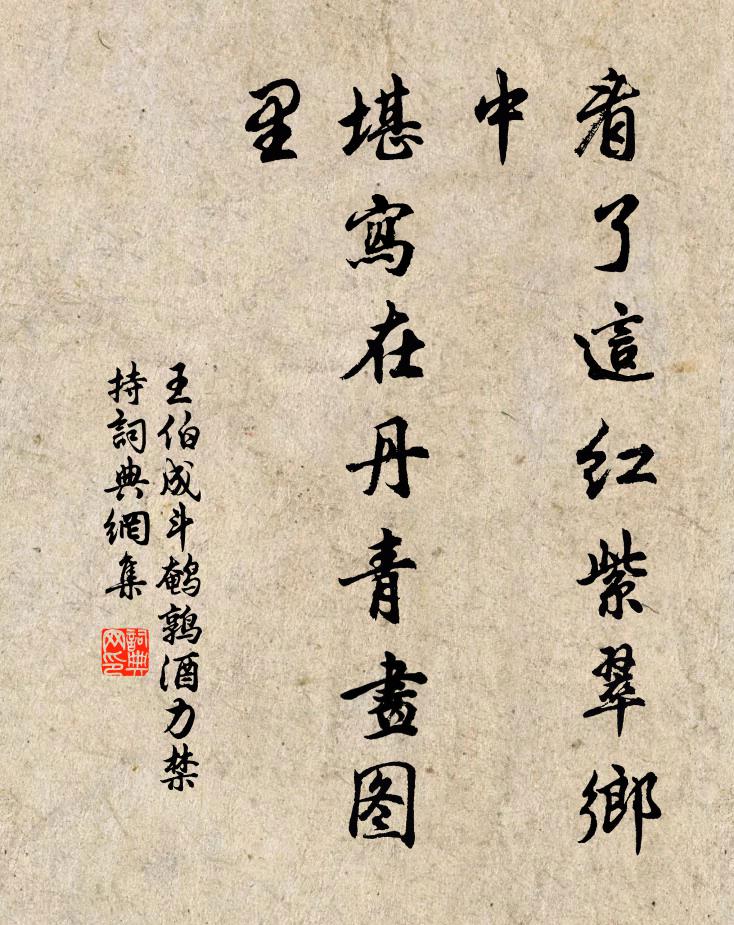 看了這紅紫翠鄉
中
堪寫在丹青畫图
里
王伯成斗鹌鹑酒力禁
持詞典網集
詞典
网印